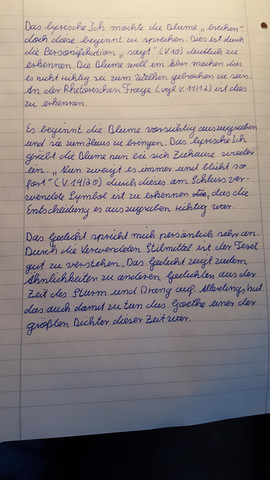 Das lyrische Ich möchte die Blume „brechen"
doch diese beginnt zu sprechen. Dies ist durch
die Personifikation „sagt" (V.10) deutlich zu
erkennen. Die Blume will im klar machen dies
es nicht richtig sei zum Welken gebrochen zu sein.
An der Rhetorischen Frage (vgl V. 11/12) ist dies
zu erkennen.
Es beginnt die Blume vorsichtig auszugraben
und sie zum Haus zu bringen. Das lyrische Ich
gräbt die Blume nun bei sich Zuhause wieder
ein. „Nun zweigt es immer und blüht so
fort" (V. 19/20) durch dieses am Schluss ver-
wendete Symbol ist zu erkennen das, dass die
Entscheidung es auszugraben richtig war.
Das Gedicht spricht mich persönlich sehr an.
Durch die verwendeten Stilmittel ist der Text
gut zu verstehen. Das Gedicht zeigt zudem
Ähnlichkeiten zu anderen Gedichten aus der
Zeit des Sturm und Drang auf. Allerdings hat
das auch damit zu tun das Goethe einer der
größten Dichter dieser Zeit war.